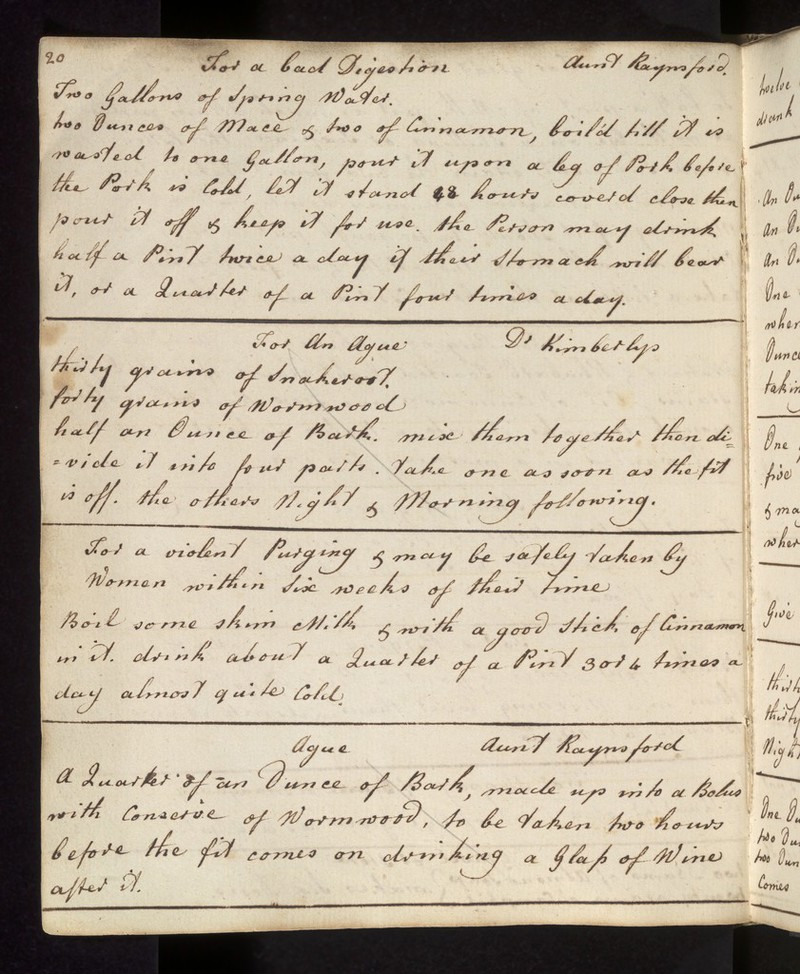 20
For a bad Digestion Aunt Raynsford.
Two Gallons of Spring Water.
two Ounces of Mace & two of Cinnamon, boil'd till it is
wasted to one Gallon, pour it upon a leg of Pork before
the Pork is Cold, let it stand 48 hours coverd close then
pour it off & keep it for use. the Person may drink
half a Pint twice a day if their Stomach will bear
it, or a Quarter of a Pint four times a day.
For An Ague Dr Kimberlys
thirty grains of Snakeroot.
forty grains of Wormwood
half an Ounce of Bark. mix them together then di=
=vide it into four parts. Take one as soon as the fit
is off. the others Night & Morning following.
For a violent Purging & may be safely taken by
Women within Six weeks of their time
Boil some skim Milk & with a good Stick of Cinnamon
in it. drink about a Quarter of a Pint 3 or 4 times a
day almost quite Cold.
Ague Aunt Raynsford
A Quarter of an Ounce of Bark, made up into a Bolus
with Conserve of Wormwood, to be taken two hours
before the fit comes on drinking a Glass of Wine
after it.
twelve
drank
An
An
An
One
when
Ounce
One
five
& ma
when
Give
thirty
Night
One
two
two
Comes